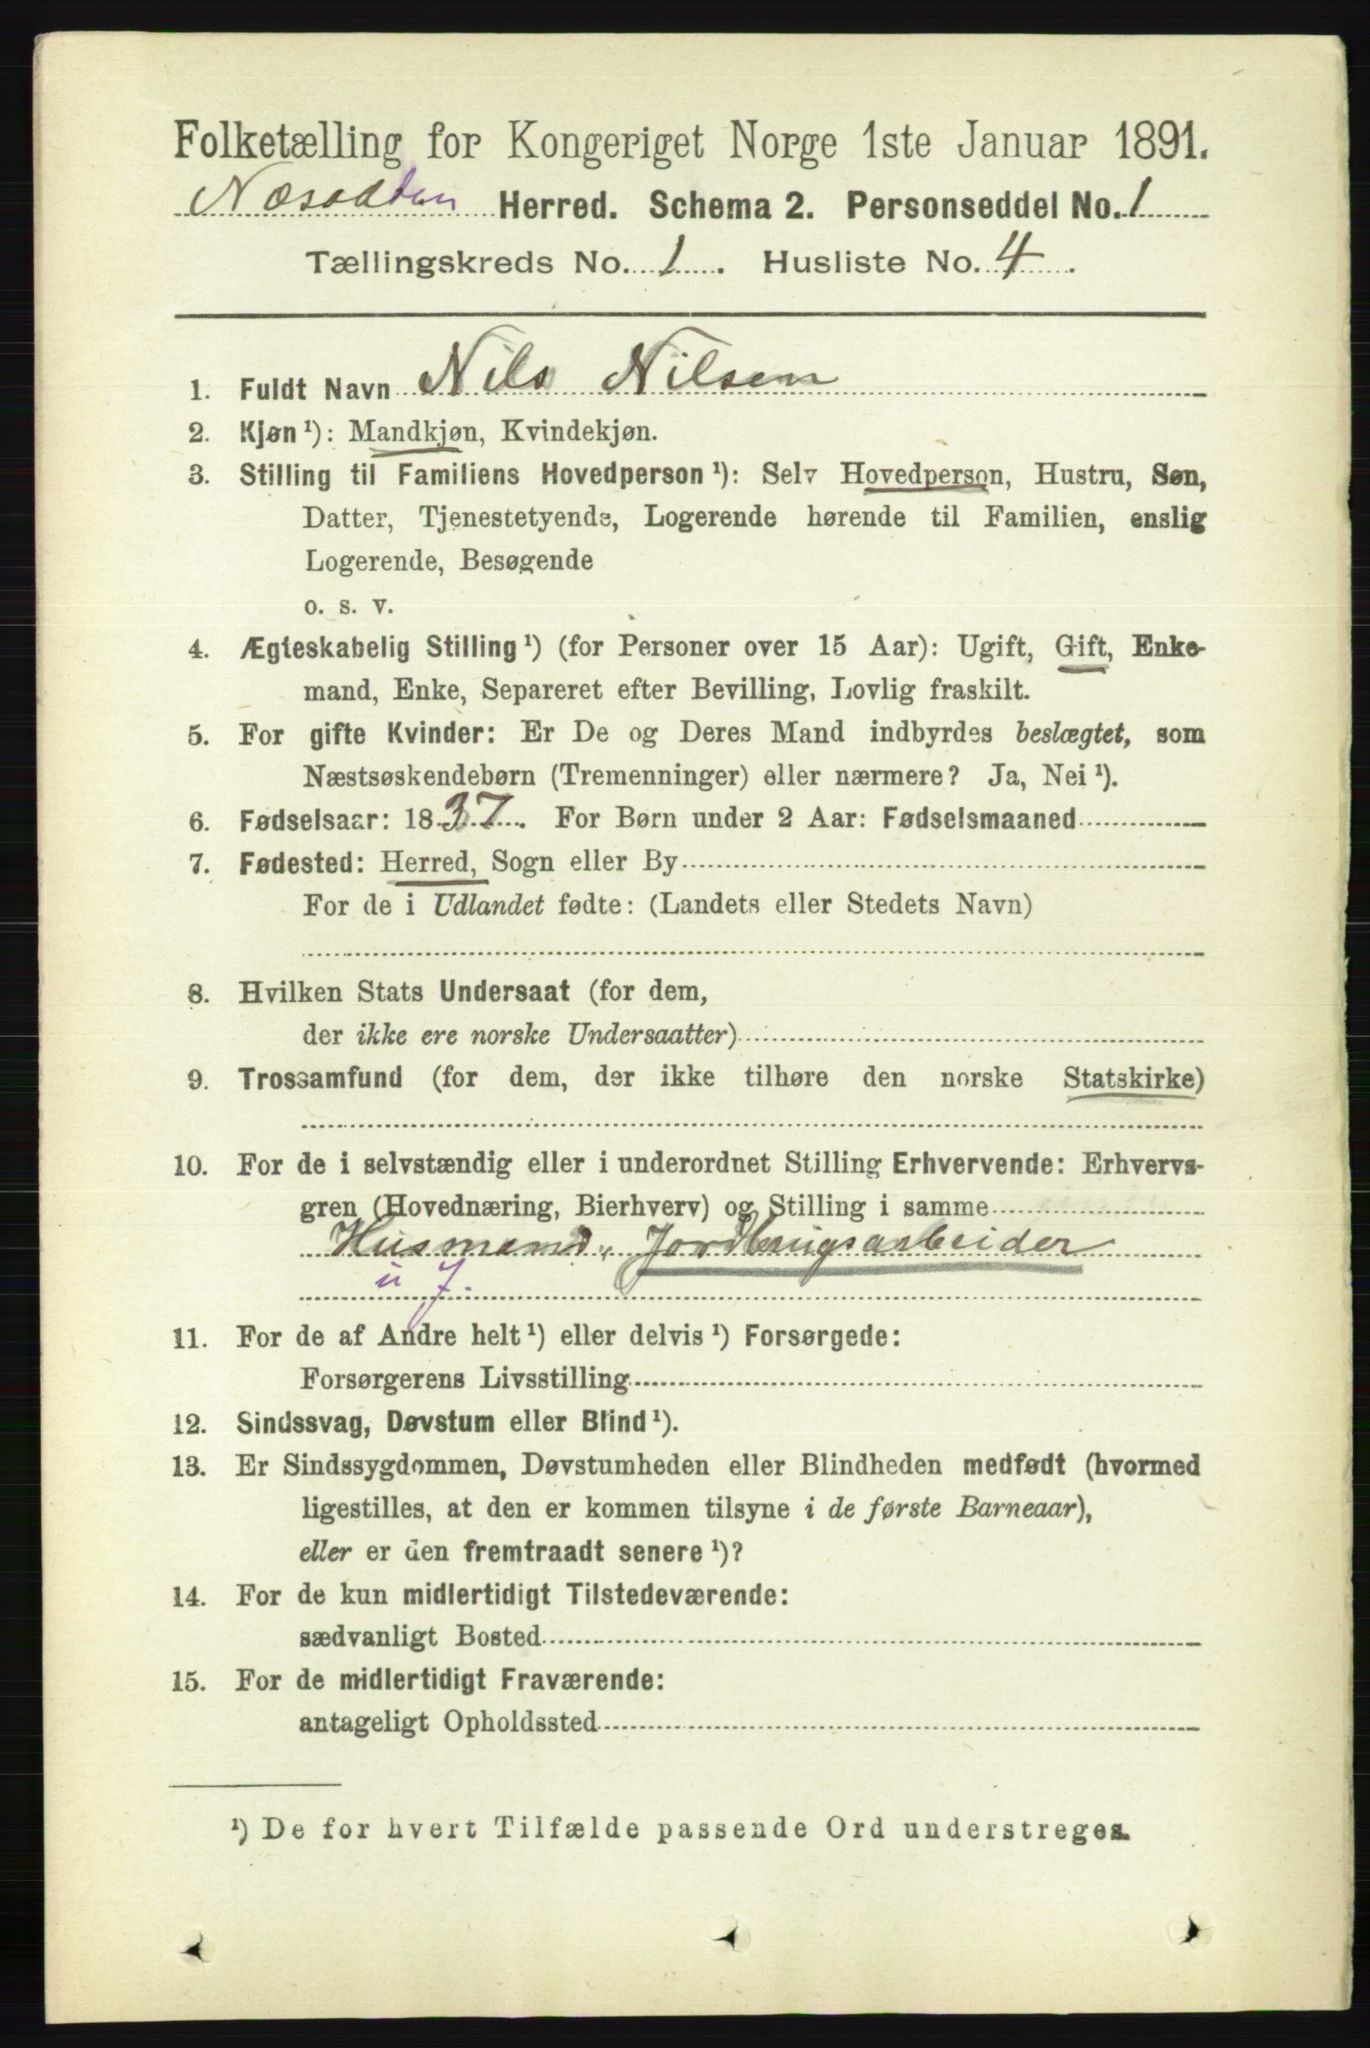 Folketælling for Kongeriget Norge 1ste Januar 1891.
Næsodden Herred. Schema 2. Personseddel No. 1
Tællingskreds No. 1. Husliste No. 4.
1. Fuldt Navn Nils Nilsen
2. Kjøn ¹): Mandkjøn, Kvindekjøn.
3. Stilling til Familiens Hovedperson ¹): Selv Hovedperson, Hustru, Søn,
Datter, Tjenestetyende, Logerende hørende til Familien, enslig
Logerende, Besøgende
o. s. v.
4. Ægteskabelig Stilling ¹) (for Personer over 15 Aar): Ugift, Gift, Enke-
mand, Enke, Separeret efter Bevilling, Lovlig fraskilt.
5. For gifte Kvinder: Er De og Deres Mand indbyrdes beslægtet, som
Næstsøskendebørn (Tremenninger) eller nærmere? Ja, Nei ¹).
6. Fødselsaar: 1837. For Børn under 2 Aar: Fødselsmaaned
7. Fødested: Herred, Sogn eller By
For de i Udlandet fødte: (Landets eller Stedets Navn)
8. Hvilken Stats Undersaat (for dem,
der ikke ere norske Undersaatter)
9. Trossamfund (for dem, der ikke tilhøre den norske Statskirke)
10. For de i selvstændig eller i underordnet Stilling Erhvervende: Erhvervs-
gren (Hovednæring, Bierhverv) og Stilling i samme
Husmand, Jordbrugsarbeider
u J.
11. For de af Andre helt ¹) eller delvis ¹) Forsørgede:
Forsørgerens Livsstilling
12. Sindssvag, Døvstum eller Blind ¹).
13. Er Sindssygdommen, Døvstumheden eller Blindheden medfødt (hvormed
ligestilles, at den er kommen tilsyne i de første Barneaar),
eller er den fremtraadt senere ¹)?
14. For de kun midlertidigt Tilstedeværende:
sædvanligt Bosted
15. For de midlertidigt Fraværende:
antageligt Opholdssted
¹) De for hvert Tilfælde passende Ord understreges.